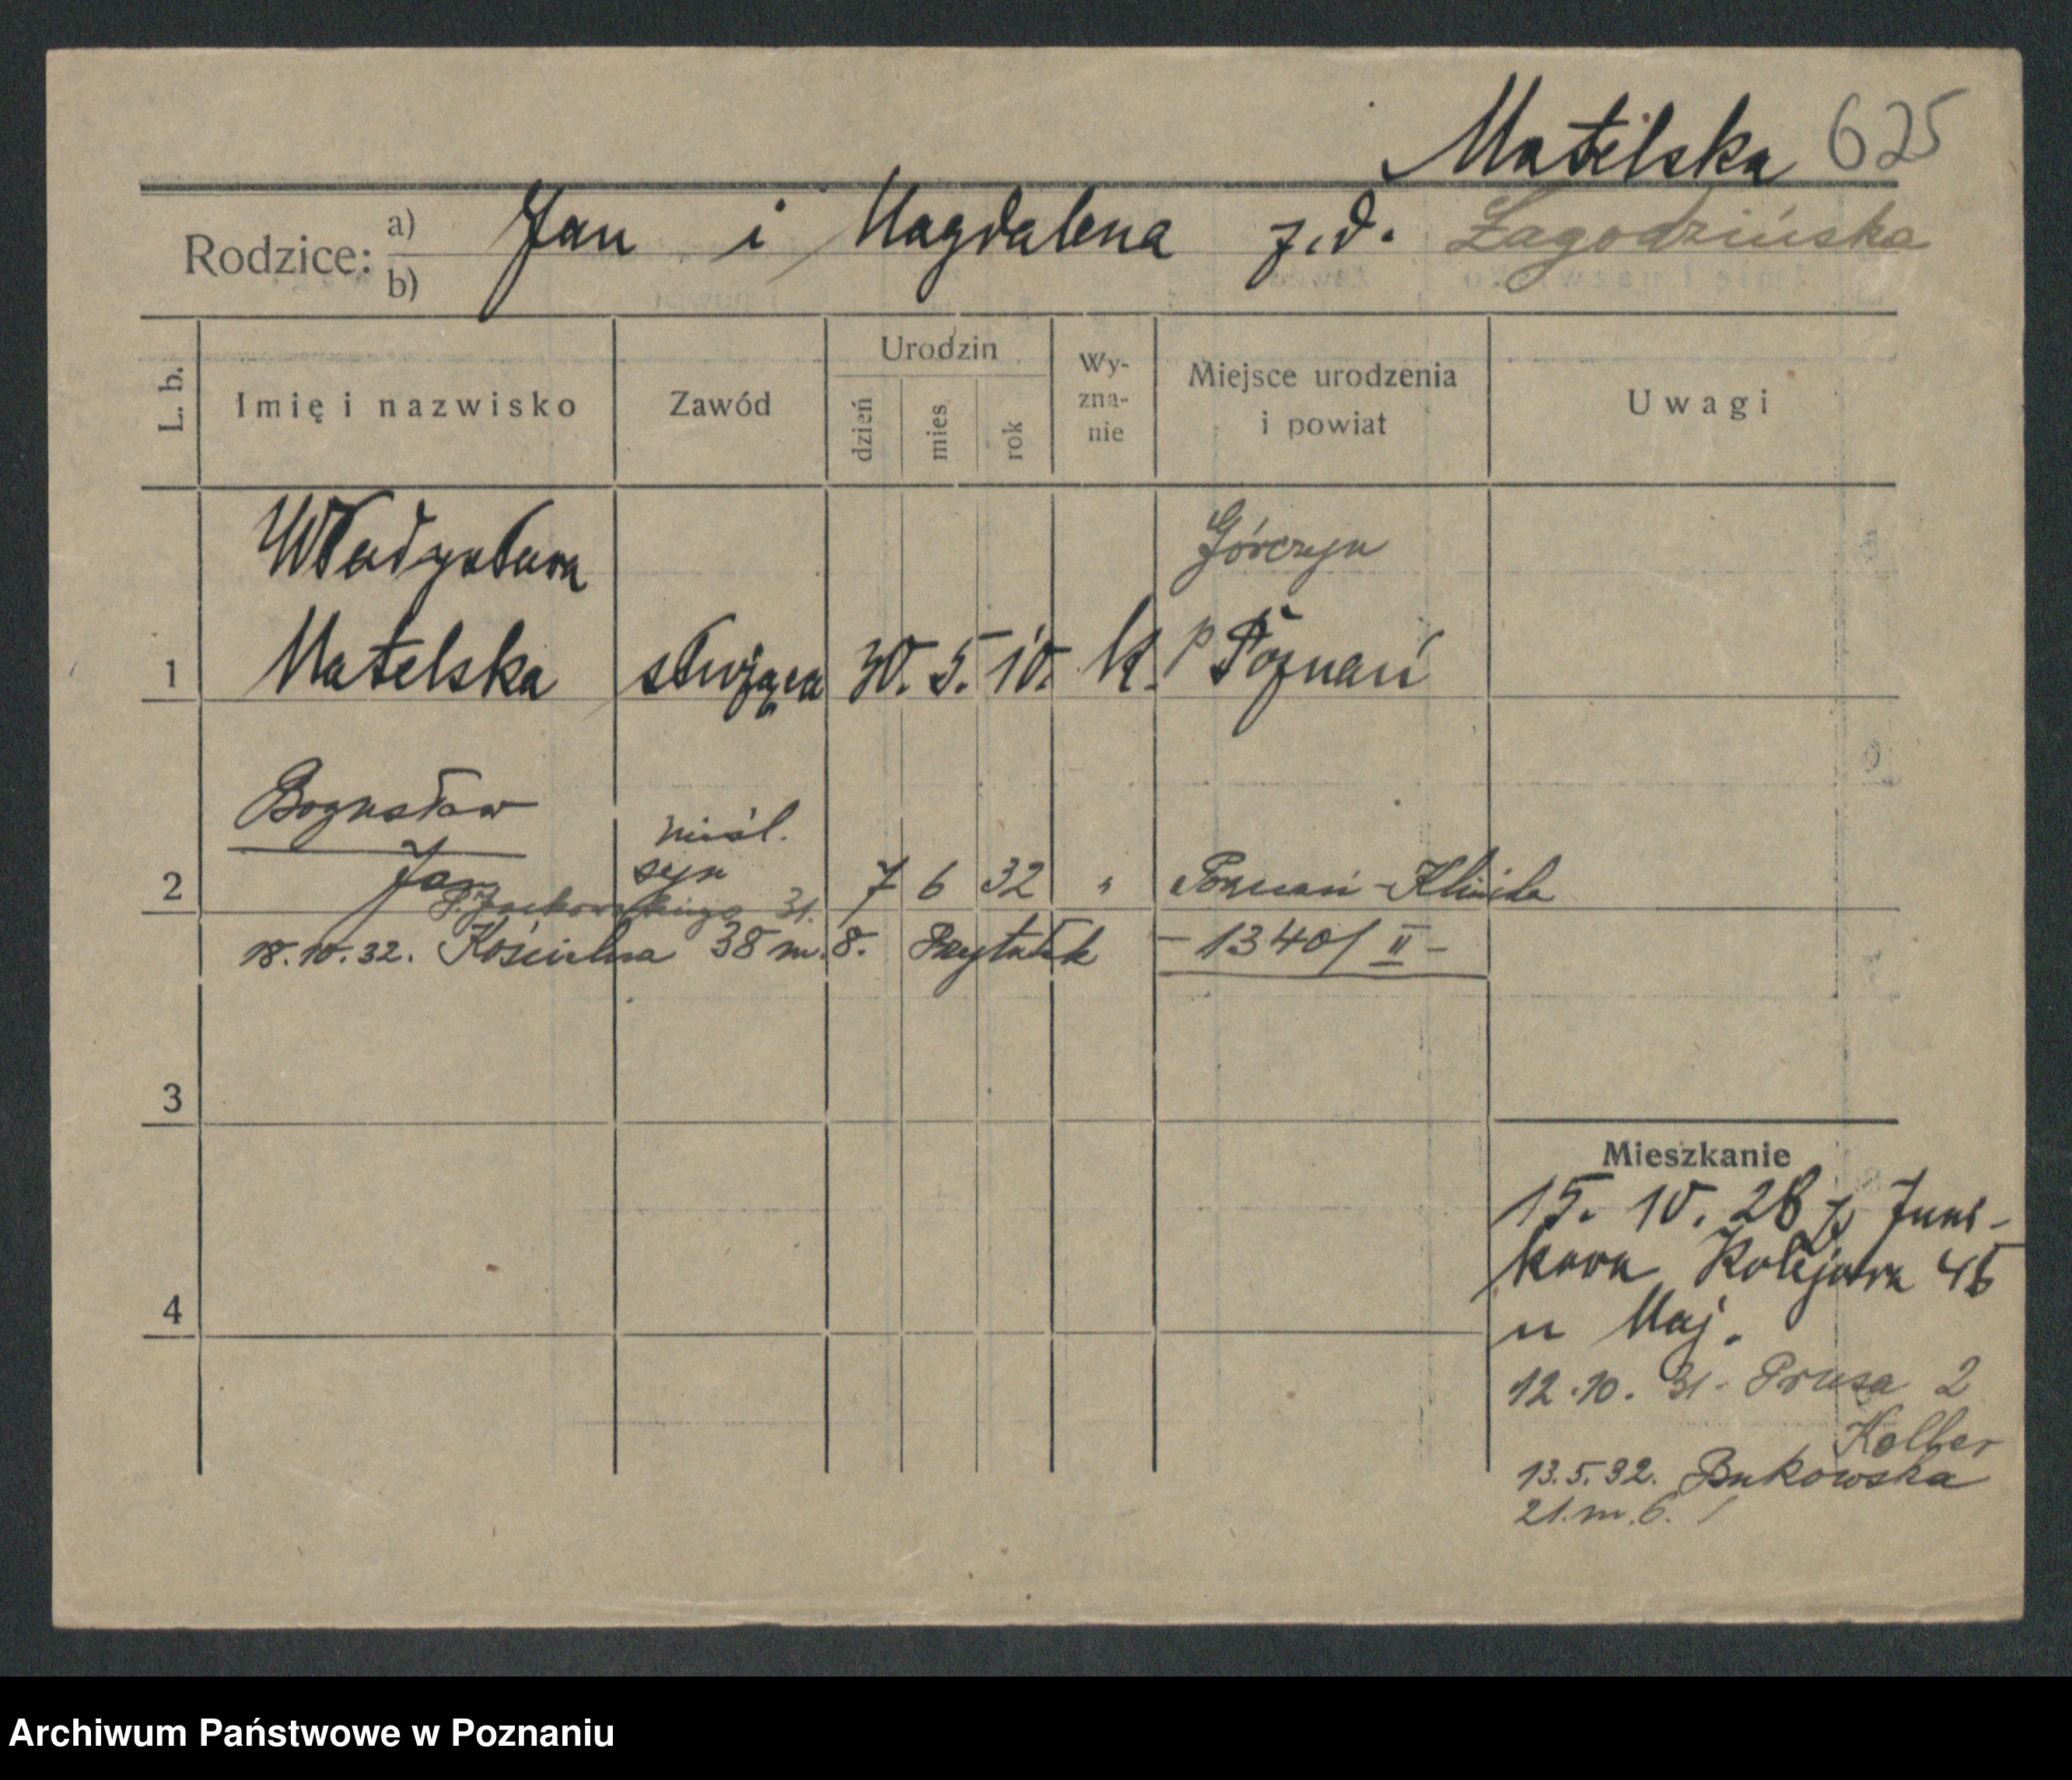 Matelska 625
Rodzice: a) b) Jan i Magdalena z. d. Łagodzińska
L. b.
Imię i nazwisko
Zawód
Urodzin
dzień
mies
rok
Wy-
zna-
nie
Miejsce urodzenia
i powiat
Uwagi
Władysława
Górczyn
1 Matelska służąca 30. 5. 10. k. p Poznań
Bogusław
nieśl.
2 Jan syn 7 6 32 " Poznań - Klinika
31.
18.10.32. Kościelna 38 m. 8. Przytułek - 1340/II -
3
4
Mieszkanie
15. 10. 28 z Juni-
kowa Kolejowa 46
u Maj.
12.10.31. Prusa 2
Kolber
13.5.32. Bukowska
21. m. 6.
Archiwum Państwowe w Poznaniu